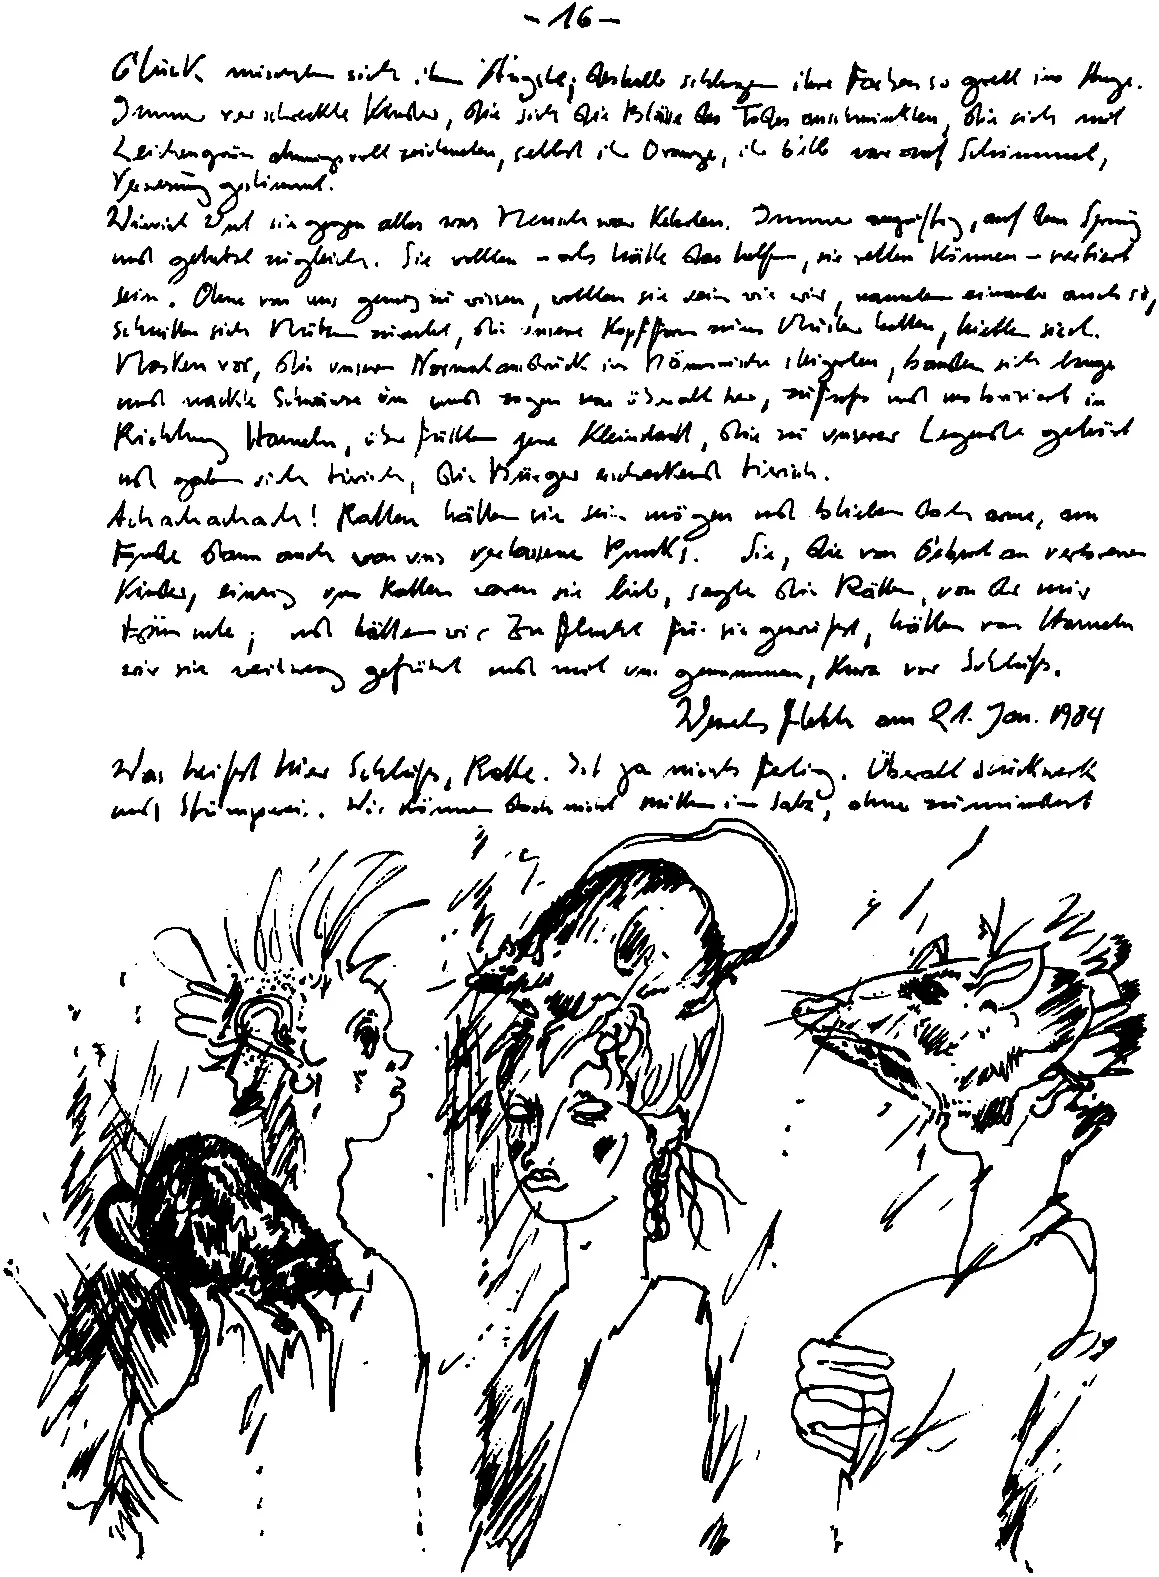 - 16 -
Glück mischten sich ihre Ängste; deshalb schlugen ihre Farben so grell ins Auge.
Immer verschreckte Kinder, die sich die Blässe des Todes anschminkten, die sich mit
Leichengrün ahnungsvoll zeichneten, selbst ihr Orange, ihr Gelb war auf Schimmel,
Verwesung gestimmt.
sie gegen alles was Mensch war Immer auf dem Sprung
und gehetzt zugleich. Sie wollten – als hätte das helfen, sie retten können – vertiert
sein. Ohne von uns genug zu wissen, wollten sie sein wie wir, nannten einander auch so,
schnitten sich Mützen zurecht, die unsere Kopfform zum Muster hatten, hielten sich
Masken vor, die unseren Normalausdruck ins Dämonische steigerten, banden sich lange
und nackte Schwänze um und zogen von überall her, zu Fuß und motorisiert in
Richtung Hameln, überfüllten jene Kleinstadt, die zu unserer Legende gehört
und gaben sich tierisch, die Bürger erschreckend tierisch.
Achachachach! Ratten hätten sie sein mögen und blieben doch arme, am
Ende dann auch von uns verlassene Punks. Sie, die von Geburt an verlorenen
Kinder, einzig uns Ratten waren sie lieb, sagte die Rättin, von der mir
träumte; und hätten wir Zuflucht für sie gewußt, hätten von Hameln
wir sie geführt und mit uns genommen, kurz vor Schluß.
am 21. Jan. 1984
Was heißt hier Schluß, Ratte. Ist ja nichts fertig. Überall Stückwerk
und Stümperei. Wir können doch nicht mitten im Satz, ohne zumindest